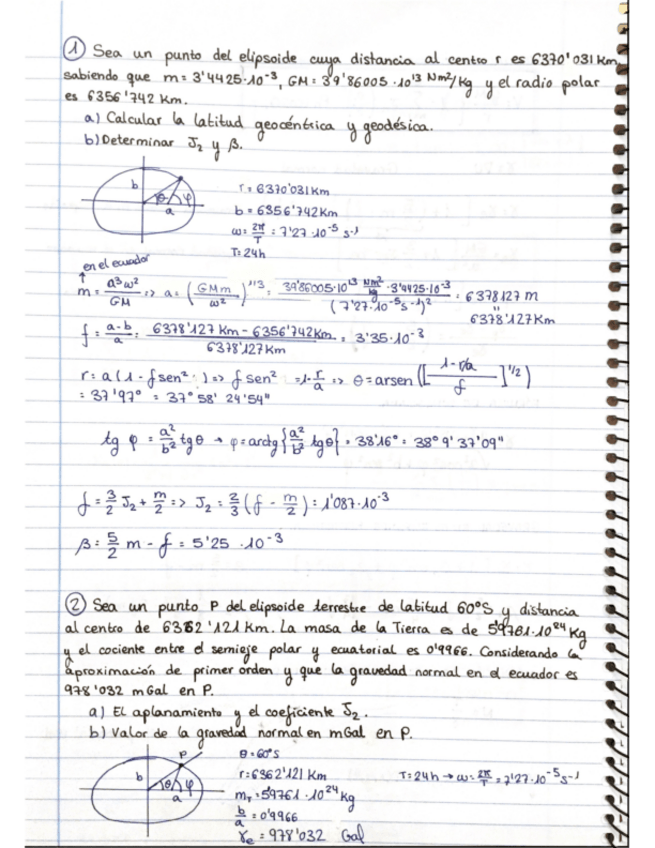 ① Sea un punto del elipsoide cuya distancia al centro r es 6370'031 Km,
sabiendo que m = 3'4425·10⁻³, GM = 39'86005·10¹³ Nm²/Kg y el radio polar
es 6356'742 Km.
a) Calcular la latitud geocéntrica y geodésica.
b) Determinar J₂ y β.
b θ φ a
r = 6370'031 Km
b = 6356'742 Km
ω = 2π/T = 7'27·10⁻⁵ s⁻¹
T = 24h
en el ecuador
↑
m = a³ω²/GM => a = (GMm/ω²)^1/3 = 39'86005·10¹³ Nm²/kg · 3'4425·10⁻³ / (7'27·10⁻⁵ s⁻¹)² = 6378127 m
"
6378'127 Km
f = a-b/a = 6378'127 Km - 6356'742 Km / 6378'127 Km = 3'35·10⁻³
r = a (1 - f sen² ) => f sen² = 1 - r/a => θ = arsen ([1 - r/a / f]^1/2)
= 37'97° = 37° 58' 24'54"
tg φ = a²/b² tg θ → φ = arctg {a²/b² tg θ} = 38'16° = 38° 9' 37'09"
f = 3/2 J₂ + m/2 => J₂ = 2/3 (f - m/2) = 1'087·10⁻³
β = 5/2 m - f = 5'25·10⁻³
② Sea un punto P del elipsoide terrestre de latitud 60°S y distancia
al centro de 6362'121 Km. La masa de la Tierra es de 5'9761·10²⁴ Kg
y el cociente entre el semieje polar y ecuatorial es 0'9966. Considerando la
aproximación de primer orden y que la gravedad normal en el ecuador es
978'032 mGal en P.
a) El aplanamiento y el coeficiente J₂.
b) Valor de la gravedad normal en mGal en P.
P b θ φ a
θ = 60°S
r = 6362'121 Km
T = 24h → ω = 2π/T = 7'27·10⁻⁵ s⁻¹
m_T = 5'9761·10²⁴ Kg
b/a = 0'9966
γe = 978'032 Gal